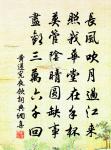 長風吹月過江來
照我華堂在手杯
莫管陰晴圓缺事
盡歡三萬六千回
黃遵憲夜飲